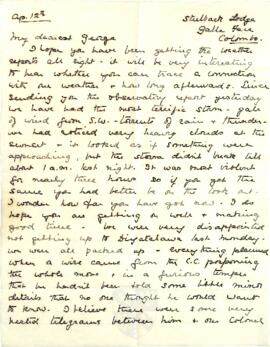 Ap. 12th
Galle Face
Colombo.
My dearest George
I hope you have been getting the weather
reports all right - it will be very interesting
to hear whether you can trace a connection
with our weather & how long afterwards. Since
sending you the observatory report yesterday
we have had the most terrific storm - gale
of wind from S.W. - torrents of rain & thunder -
we had noticed very heavy clouds at the
sunset - & it looked as if something were
approaching, but the storm didn't burst till
about 1 a.m. last night. It was most violent
for nearly three hours so if you get the
same you had better be on the look out.
I wonder how far you have got now. I do
hope you are getting on well & making
good time - We were very disappointed
not getting up to Diyatalawa last Monday -
we were all packed up & everything
when a wire came from the C.C. postponing
the whole move & in a furious temper
that he hadn't been told some little minor
details that no one thought he would want
to know. I believe there were some very
heated telegrams between him & our Colonel